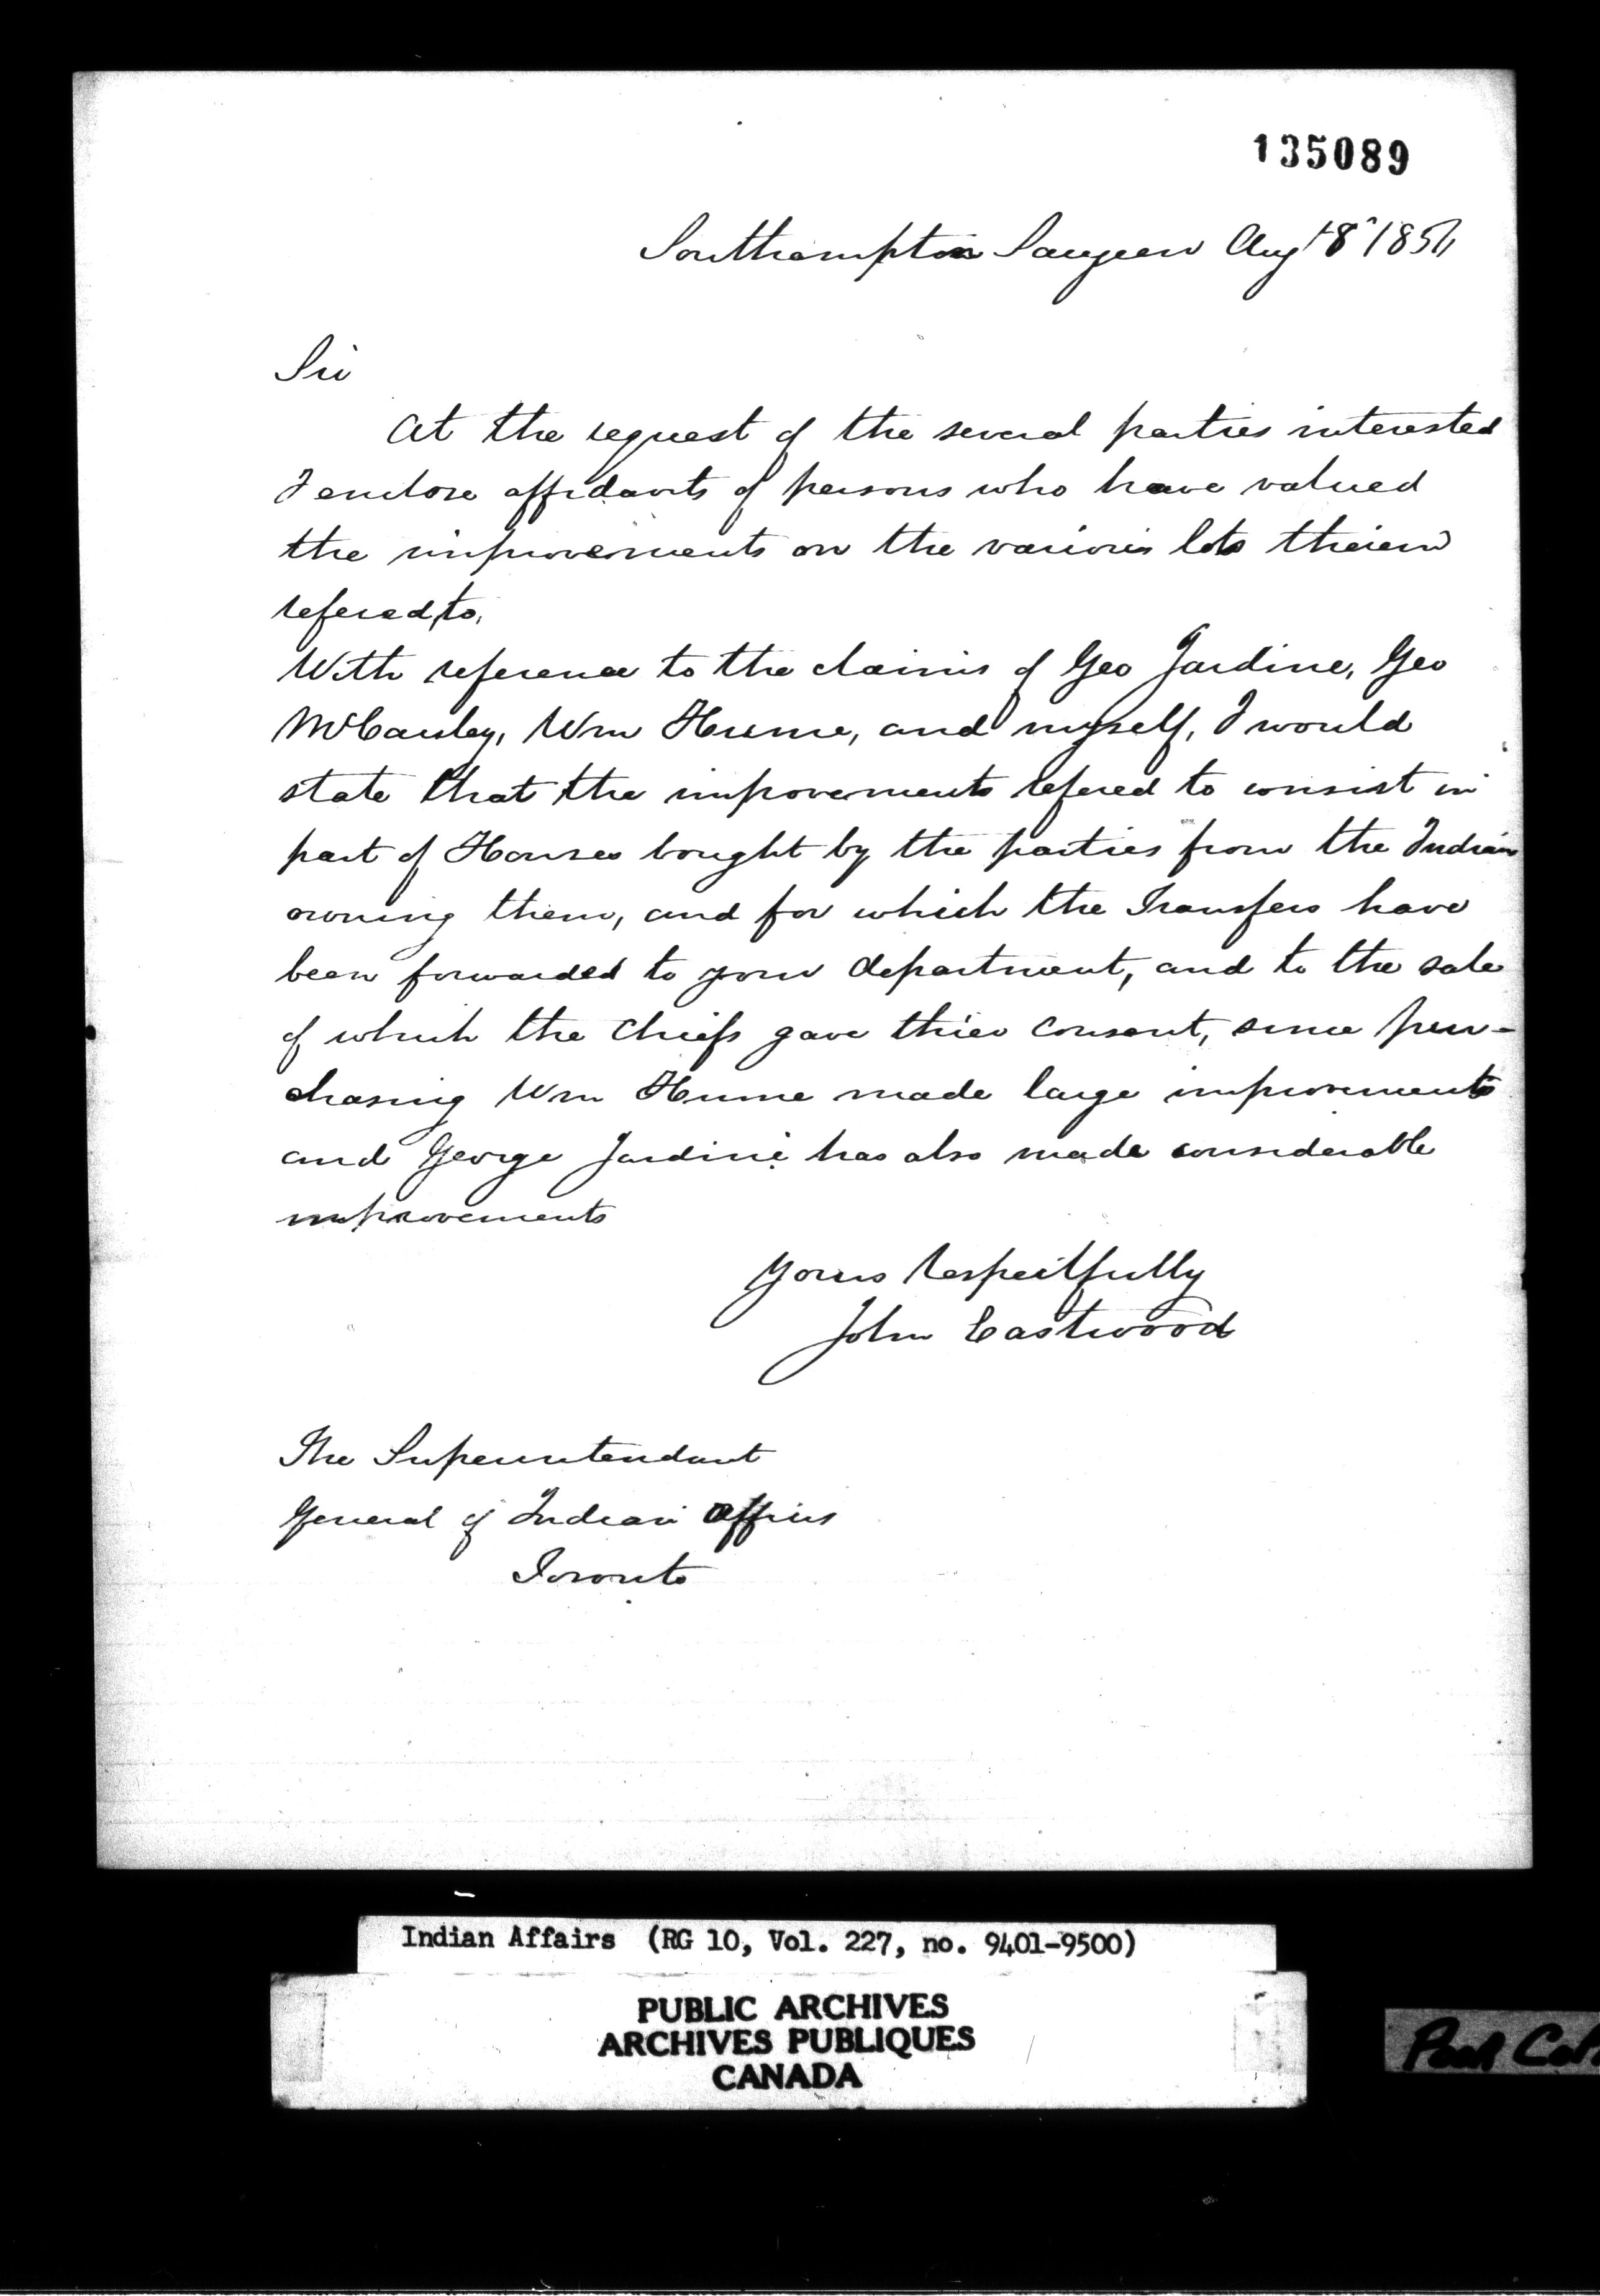 135089
Southampton Saugeen Augt 8th 1856
Sir
At the request of the several parties interested
I enclose affidavits of persons who have valued
the improvements on the various lots therein
refered to.
With reference to the claims of Geo Jardine, Geo
McCauley, Wm Hume, and myself, I would
state that the improvements refered to consist in
part of Houses bought by the parties from the Indian
owning them, and for which the Transfers have
been forwarded to your department, and to the sale
of which the Chiefs gave thier consent, since pur-
chasing Wm Hume made large improvements
and George Jardine has also made considerable
improvements
Yours Respectfully
John Eastwood
The Superintendant
General of Indian Affairs
Toronto
Indian Affairs (RG 10, Vol. 227, no. 9401-9500)
PUBLIC ARCHIVES
ARCHIVES PUBLIQUES
CANADA